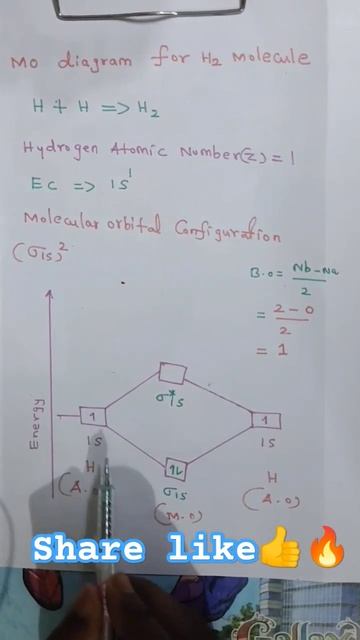 MO diagram for H2 Molecule
H + H => H2
Hydrogen Atomic Number(Z) = 1
EC => 1S1
Molecular orbital Configuration
(σ1s)2
B.O = Nb-Na
2
= 2 - 0
2
= 1
Energy
σ*1s
1
1
1S
1S
1↿⇂
σ1s
H
H
(A.O
(M.O)
(A.O)
Share like👍🔥